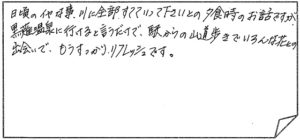 日頃の仕事は、川に全部すてていって下さいとの夕食時のお話ですが、
黒薙温泉に行けると言うだけで、駅からの山道歩きでいろんな花との
出会いで、もうすっかりリフレッシュです。